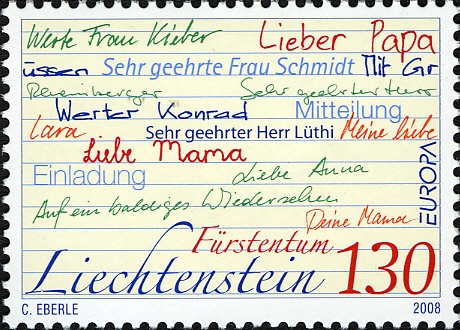 Werte Frau Kieber Lieber Papa
üssen Sehr geehrte Frau Schmidt Mit Gr
Rheinberger Sehr geehrter Herr
Werter Konrad Mitteilung
Lara Sehr geehrter Herr Lüthi Meine liebe
Liebe Mama
Einladung Liebe Anna
Auf ein baldiges Wiedersehen
Deine Mama
EUROPA
Fürstentum
Liechtenstein 130
C. EBERLE 2008